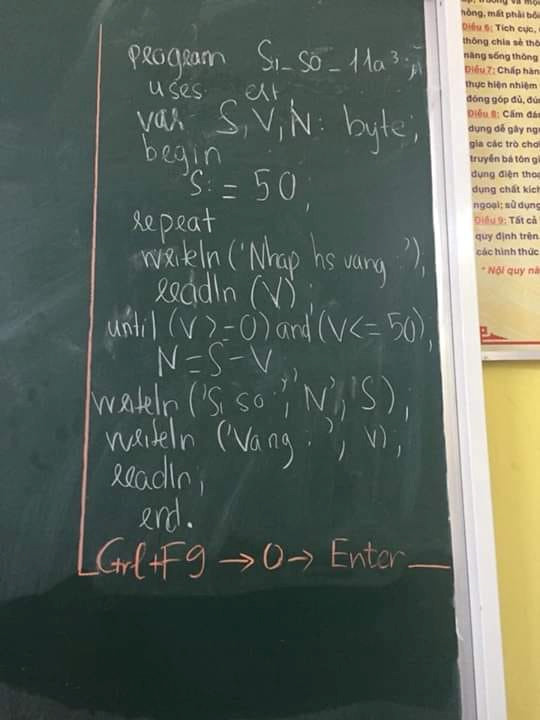 program Si_so_11a3;
uses crt
var S,V,N: byte;
begin
S:=50;
repeat
writeln('Nhap hs vang:');
readln(V);
until(V>=0)and(V<=50);
N=S-V
writeln('Si so:',N','S);
writeln('Vang:',V);
readln;
end.
Ctrl+F9→0→Enter
hỏng, mất phải bồi
Điều 6: Tích cực,
thông chia sẻ thô
năng sống thông
Điều 7: Chấp hàn
thực hiện nhiệm
đóng góp đủ, đún
Điều 8: Cấm đán
dụng dễ gây ngu
gia các trò chơi
truyền bá tôn gi
dụng điện thoạ
dụng chất kích
ngoại; sử dụng
Điều 9: Tất cả
quy định trên
các hình thức
* Nội quy nà